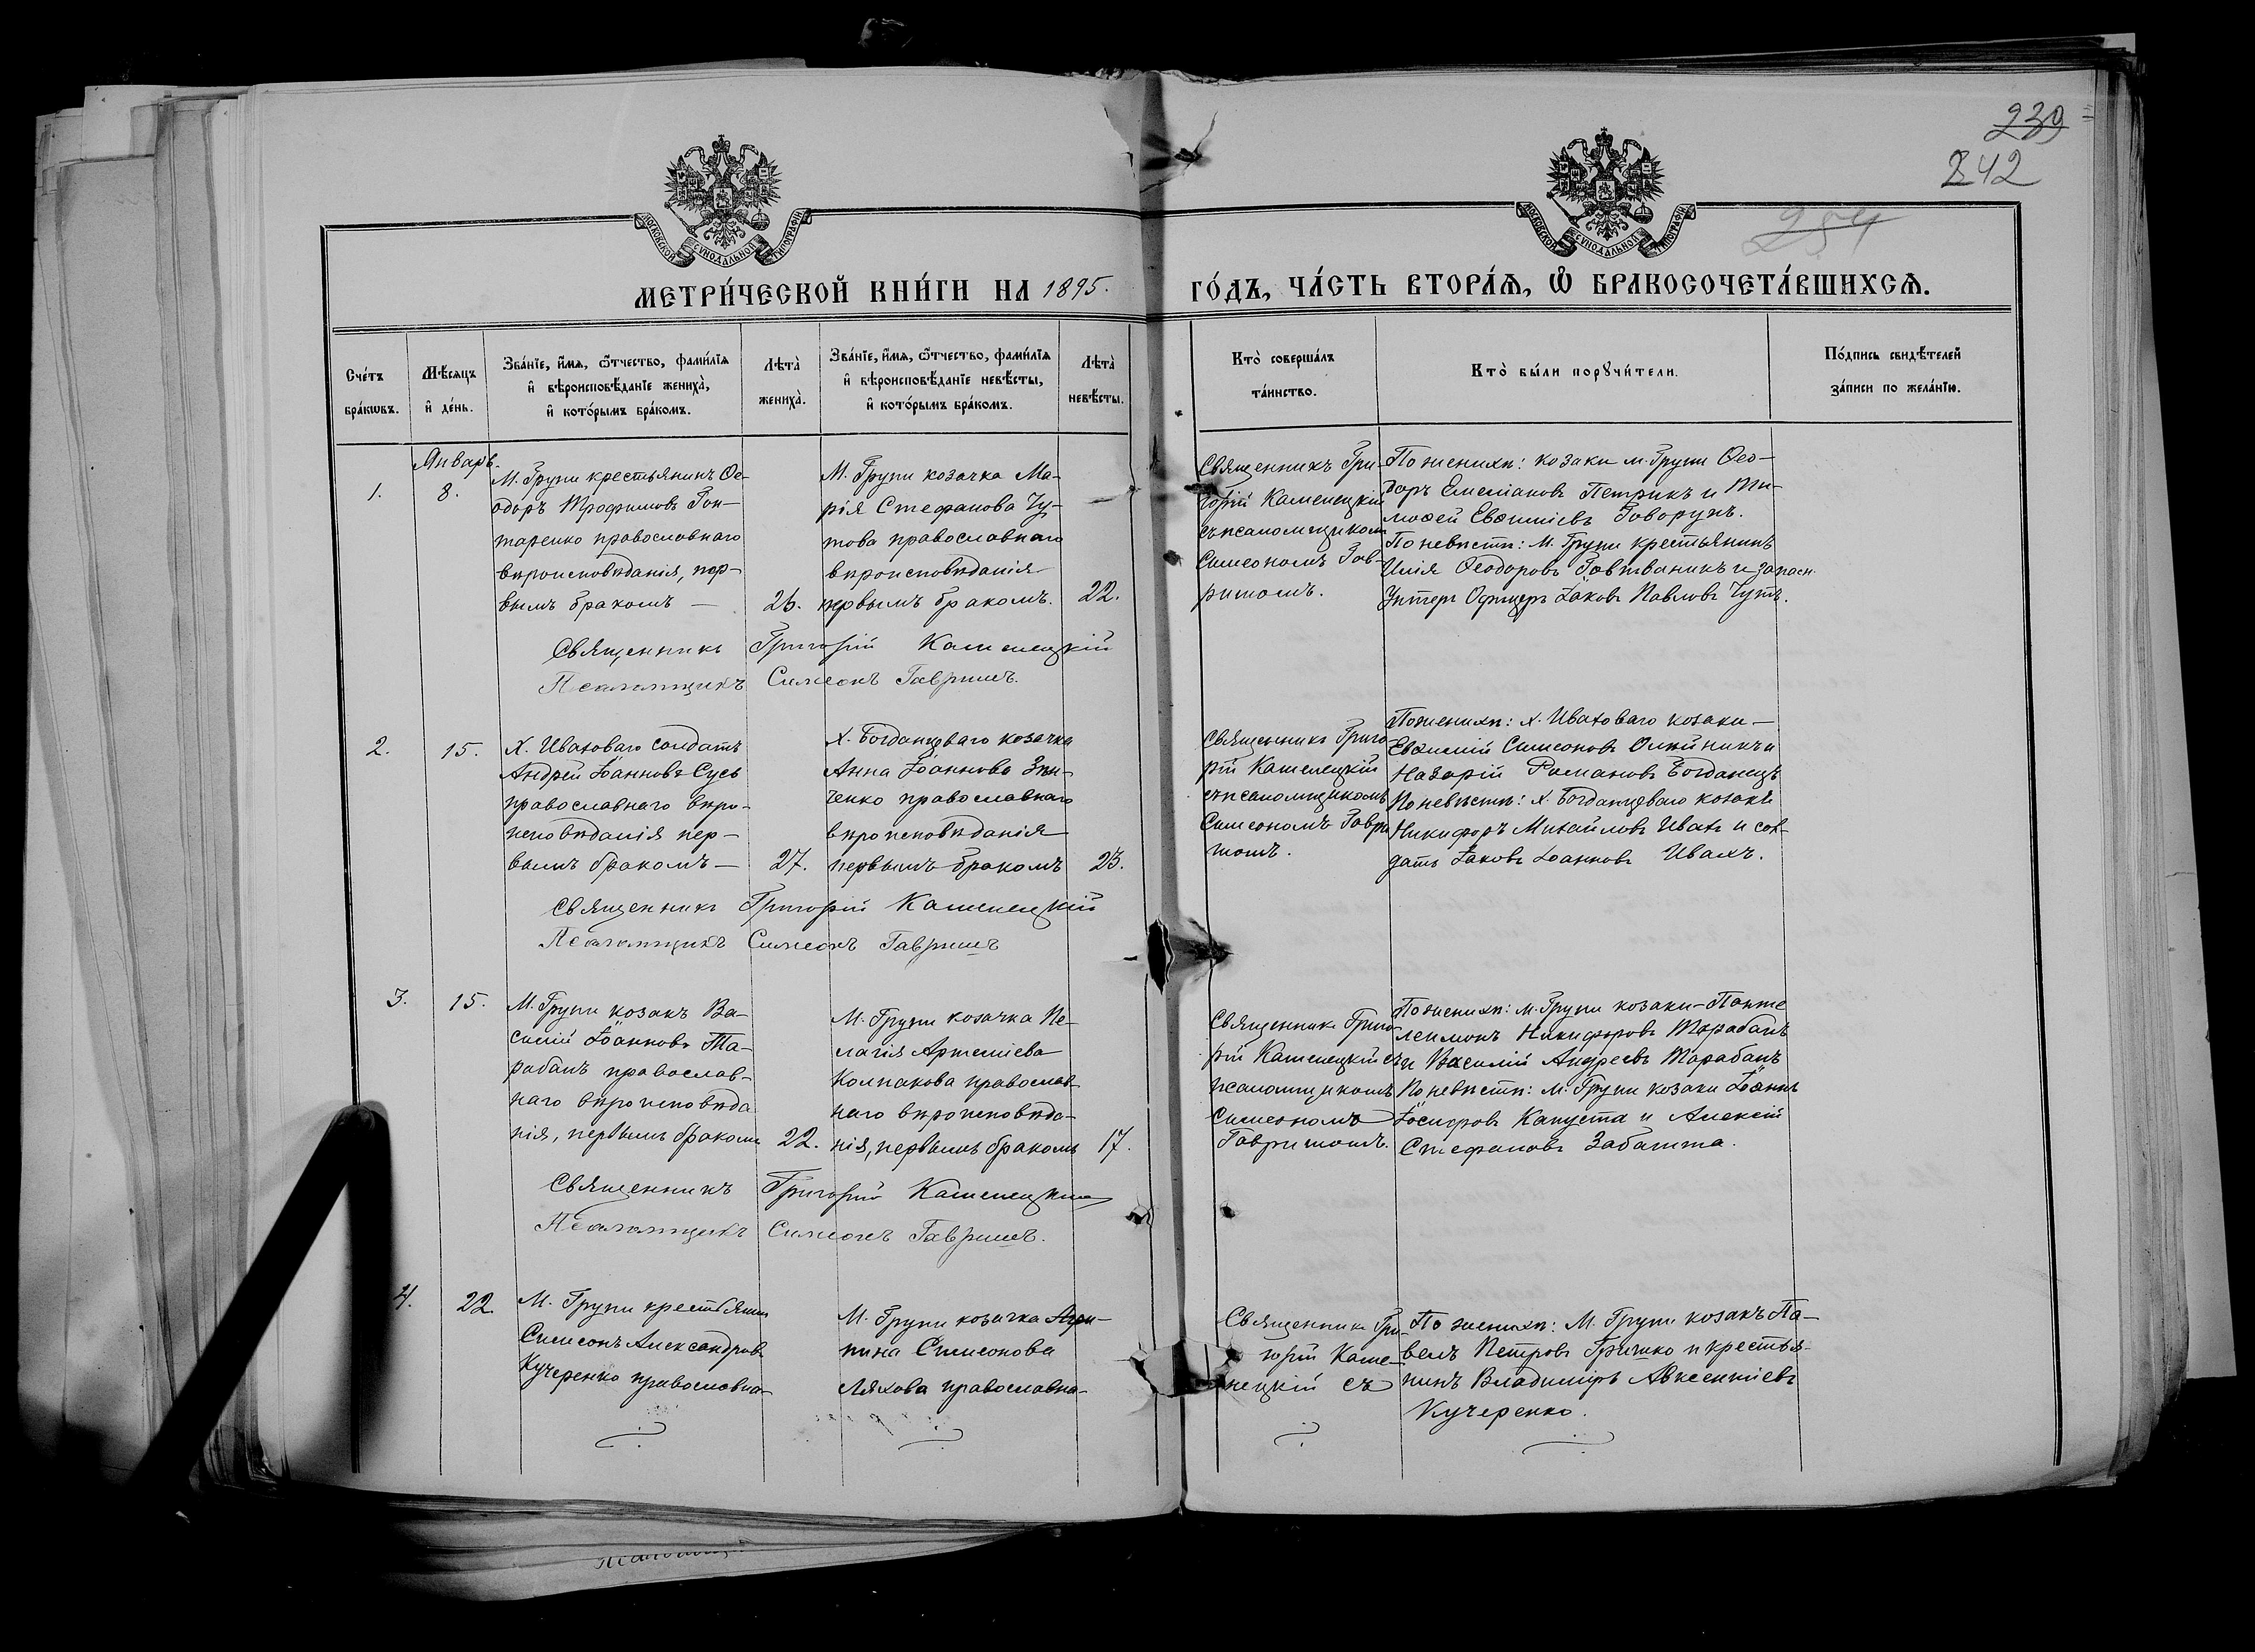 239
242
254
МОСКОВСКОЙ СУНОДАЛЬНОЙ ТИПОГРАФІИ
МОСКОВСКОЙ СУНОДАЛЬНОЙ ТИПОГРАФІИ
МЕТРИ́ЧЕСКОЙ КНИ́ГИ НА 1895. ГО́ДЪ, ЧА́СТЬ ВТОРА́Я, Ѡ БРАКОСОЧЕТА́ВШИХСЯ.
Сче́тъ бра́кѡвъ.
Мѣ́сяцъ и҆ де́нь.
Зва́нїе, и҆́мя, ѻ҆́тчество, фами́лїя
и҆ вѣроисповѣ́данїе жениха̀,
и҆ кото́рымъ бра́комъ.
Лѣта̀ жениха̀.
Зва́нїе, и҆́мя, ѻ҆́тчество, фами́лїя
и҆ вѣроисповѣ́данїе невѣ́сты,
и҆ кото́рымъ бра́комъ.
Лѣта̀ невѣ́сты.
Кто̀ соверша́лъ
та́инство.
Кто̀ бы́ли порꙋчи́тели.
По́дпись свидѣ́телей
за́писи по жела́нїю.
Январь.
1.
8.
М. Груни крестьянинъ Ѳе-
одоръ Трофимовъ Гон-
таренко православнаго
вѣроисповѣданія, пер-
вымъ бракомъ —
26.
М. Груни козачка Ма-
рія Стефанова Чу-
това православнаго
вѣроисповѣданія
первымъ бракомъ.
22.
Священникъ Гри-
горій Каменецкій
съ псаломщикомъ
Симеономъ Гав-
ришомъ.
По женихѣ: козаки м. Груни Ѳео-
доръ Емеліановъ Петрикъ и Ти-
моѳей Евѳиміевъ Говорунъ.
По невѣстѣ: М. Груни крестьянинъ
Илія Ѳеодоровъ Говтваникъ и запасн.
Унтеръ Офицеръ Іаковъ Павловъ Чутъ.
Священникъ Григорій Каменецкій
Псаломщикъ Симеонъ Гавришъ.
2.
15.
Х. Иваховаго солдатъ
Андрей Іоанновъ Сусь
православнаго вѣро-
исповѣданія пер-
вымъ бракомъ —
27.
Х. Богданцеваго козачка
Анна Іоаннова Зин-
ченко православнаго
вѣроисповѣданія
первымъ бракомъ
23.
Священникъ Григо-
рій Каменецкій
съ псаломщикомъ
Симеономъ Гаври
шомъ.
По женихѣ: х. Иваховаго козаки —
Евѳимій Симеоновъ Олейникъ и
Назарій Романовъ Богданецъ
По невѣстѣ: х. Богданцеваго козакъ
Никифоръ Михайловъ Ивахъ и сол-
датъ Іаковъ Іоанновъ Ивахъ.
Священникъ Григорій Каменецкій
Псаломщикъ Симеонъ Гавришъ
3.
15.
М. Груни козакъ Ва-
силій Іоанновъ Та-
рабанъ православ-
наго вѣроисповѣда
нія, первымъ бракомъ
22.
М. Груни козачка Пе-
лагія Артеміева
Колпакова православ-
наго вѣроисповѣда-
нія, первымъ бракомъ
17.
Священникъ Григо-
рій Каменецкій съ
псаломщикомъ
Симеономъ
Гавришомъ.
По женихѣ: м. Груни козаки — Панте
леимонъ Никифоровъ Тарабанъ
и Василій Андреевъ Тарабанъ
По невѣстѣ: м. Груни козаки Іоаннъ
Іосифовъ Капуста и Алексій
Стефановъ Забашта.
Священникъ Григорій Каменецкій
Псаломщикъ Симеонъ Гавришъ.
4.
22.
М. Груни крестьянинъ
Симеонъ Александровъ
Кучеренко православна-
М. Груни козачка Агри-
пина Симеонова
Ляхова православна-
Священникъ Гри-
горій Каме-
нецкій съ
По женихѣ: М. Груни козакъ Па-
велъ Петровъ Гришко и крестья-
нинъ Владиміръ Авксентіевъ
Кучеренко.